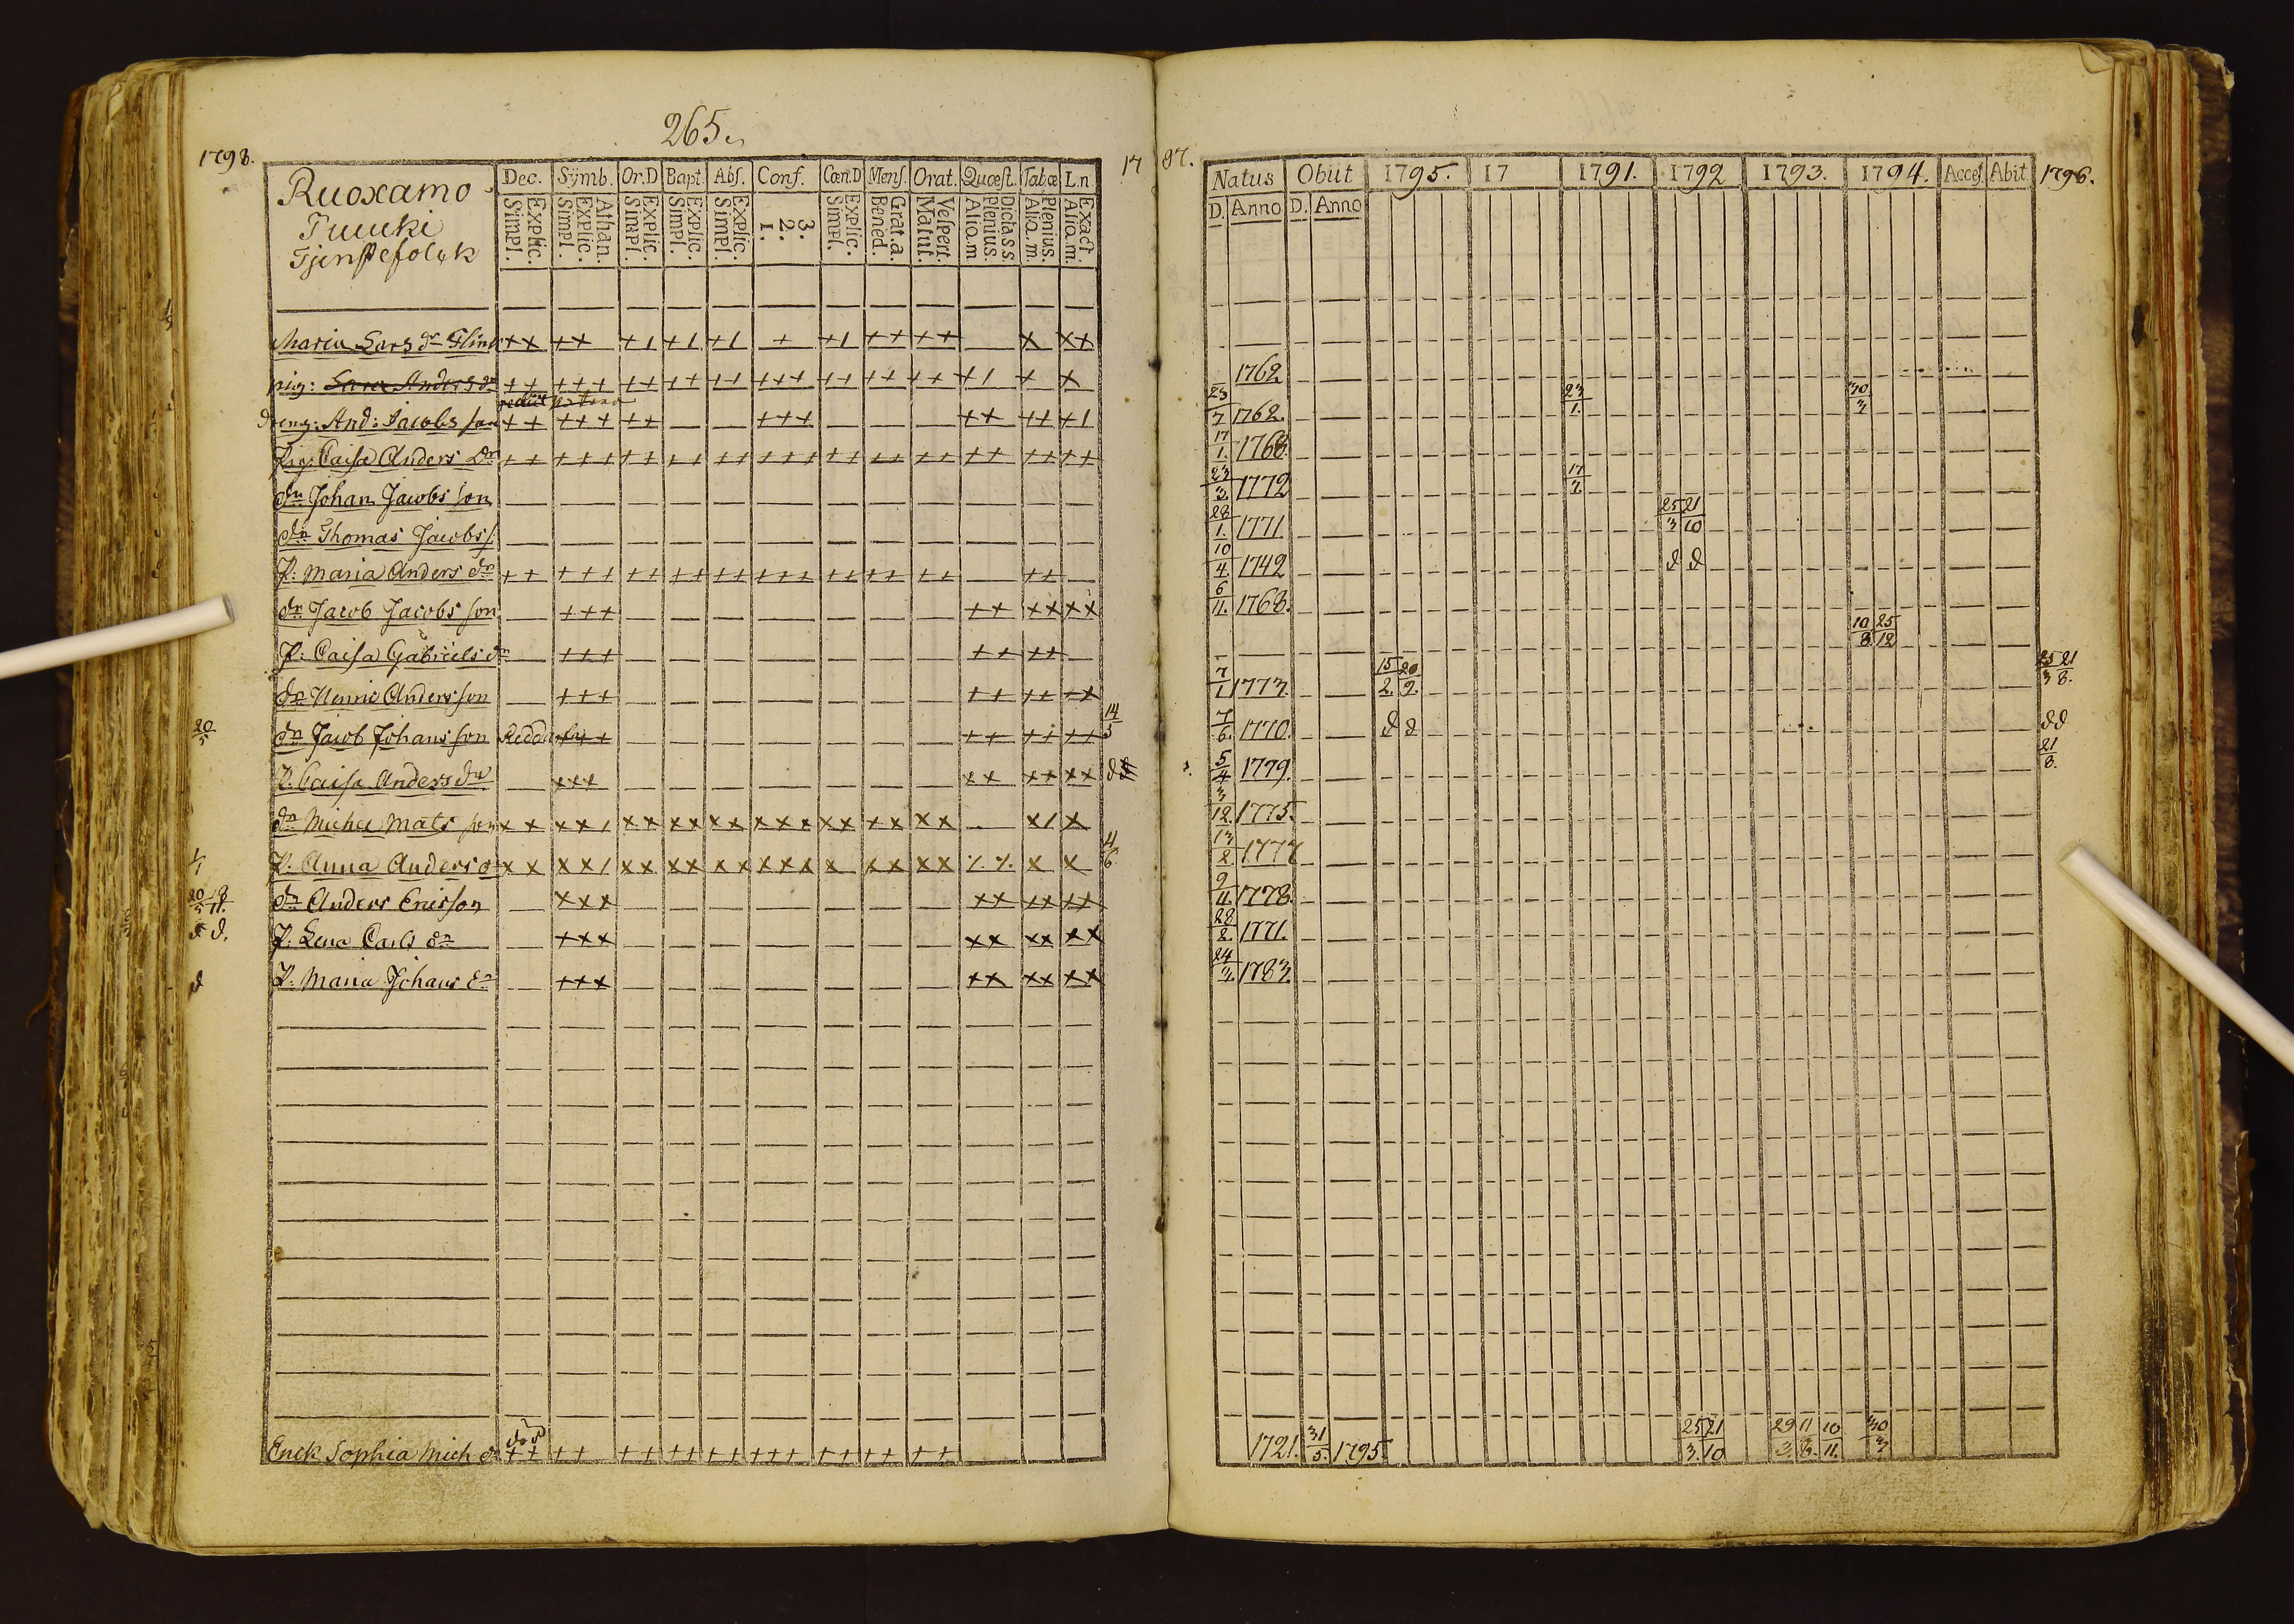 265.
1798.
Ruoxamo
Tuucki
Tjenstefolck
Dec. Symb. Or.D Bapt. Abs. Conf. Cœn.D Mens. Orat. Quœst. Tab.œ L.n
Explic. Simpl.
Athan. Explic. Simpl.
Explic. Simpl.
Explic. Simpl.
Explic. Simpl.
3. 2. 1.
Explic. Simpl.
Grat.a. Bened.
Vespert. Matut.
Dicta.s.s. Plenius. Aliq.m
Plenius. Aliq.m.
Exact. Aliq.m.
Maria Lars dr Flink
pig: Sara Anders dr
dreng: And: Jacobs son
Pig: Caisa Anders dr
dn Johan Jacobs son
dn Thomas Jacobs s.
P: Maria Anders dr
dn Jacob Jacobs son
P: Caisa Gabriels dr
dn Henric Anders son
20/5 dn Jacob Johans son 14/5
P. Caisa Anders dr
dn Michel Mats son
1/1 P: Anna Anders d 11/6
20/5 18/11. dn Anders Ericsson
d d. P: Lena Carls dr
d P: Maria Johans dr
Enck Sophia Mich dr död
17 97.
Natus Obiit 1795. 17 1791. 1792 1793. 1794. Acces. Abit. 1796.
D. Anno D. Anno
1762
23/7 1762. 23/1. 30/3
17/1. 1768.
23/3. 1772 17/7
28/1. 1771. 25/3 21/10
10/4. 1742 d d
6/11. 1768.
10/8 25/12
7/1 1773. 15/2. 20/9. 25/3 21/8.
7/6. 1770. d d dd
5/4 1779. 21/8.
3/12. 1775.
13/2 1777
9/11. 1778.
28/2. 1771.
24/3. 1783.
1721. 31/5. 1795. 25/3. 21/10 29/3. 11/8. 10/11. 30/3